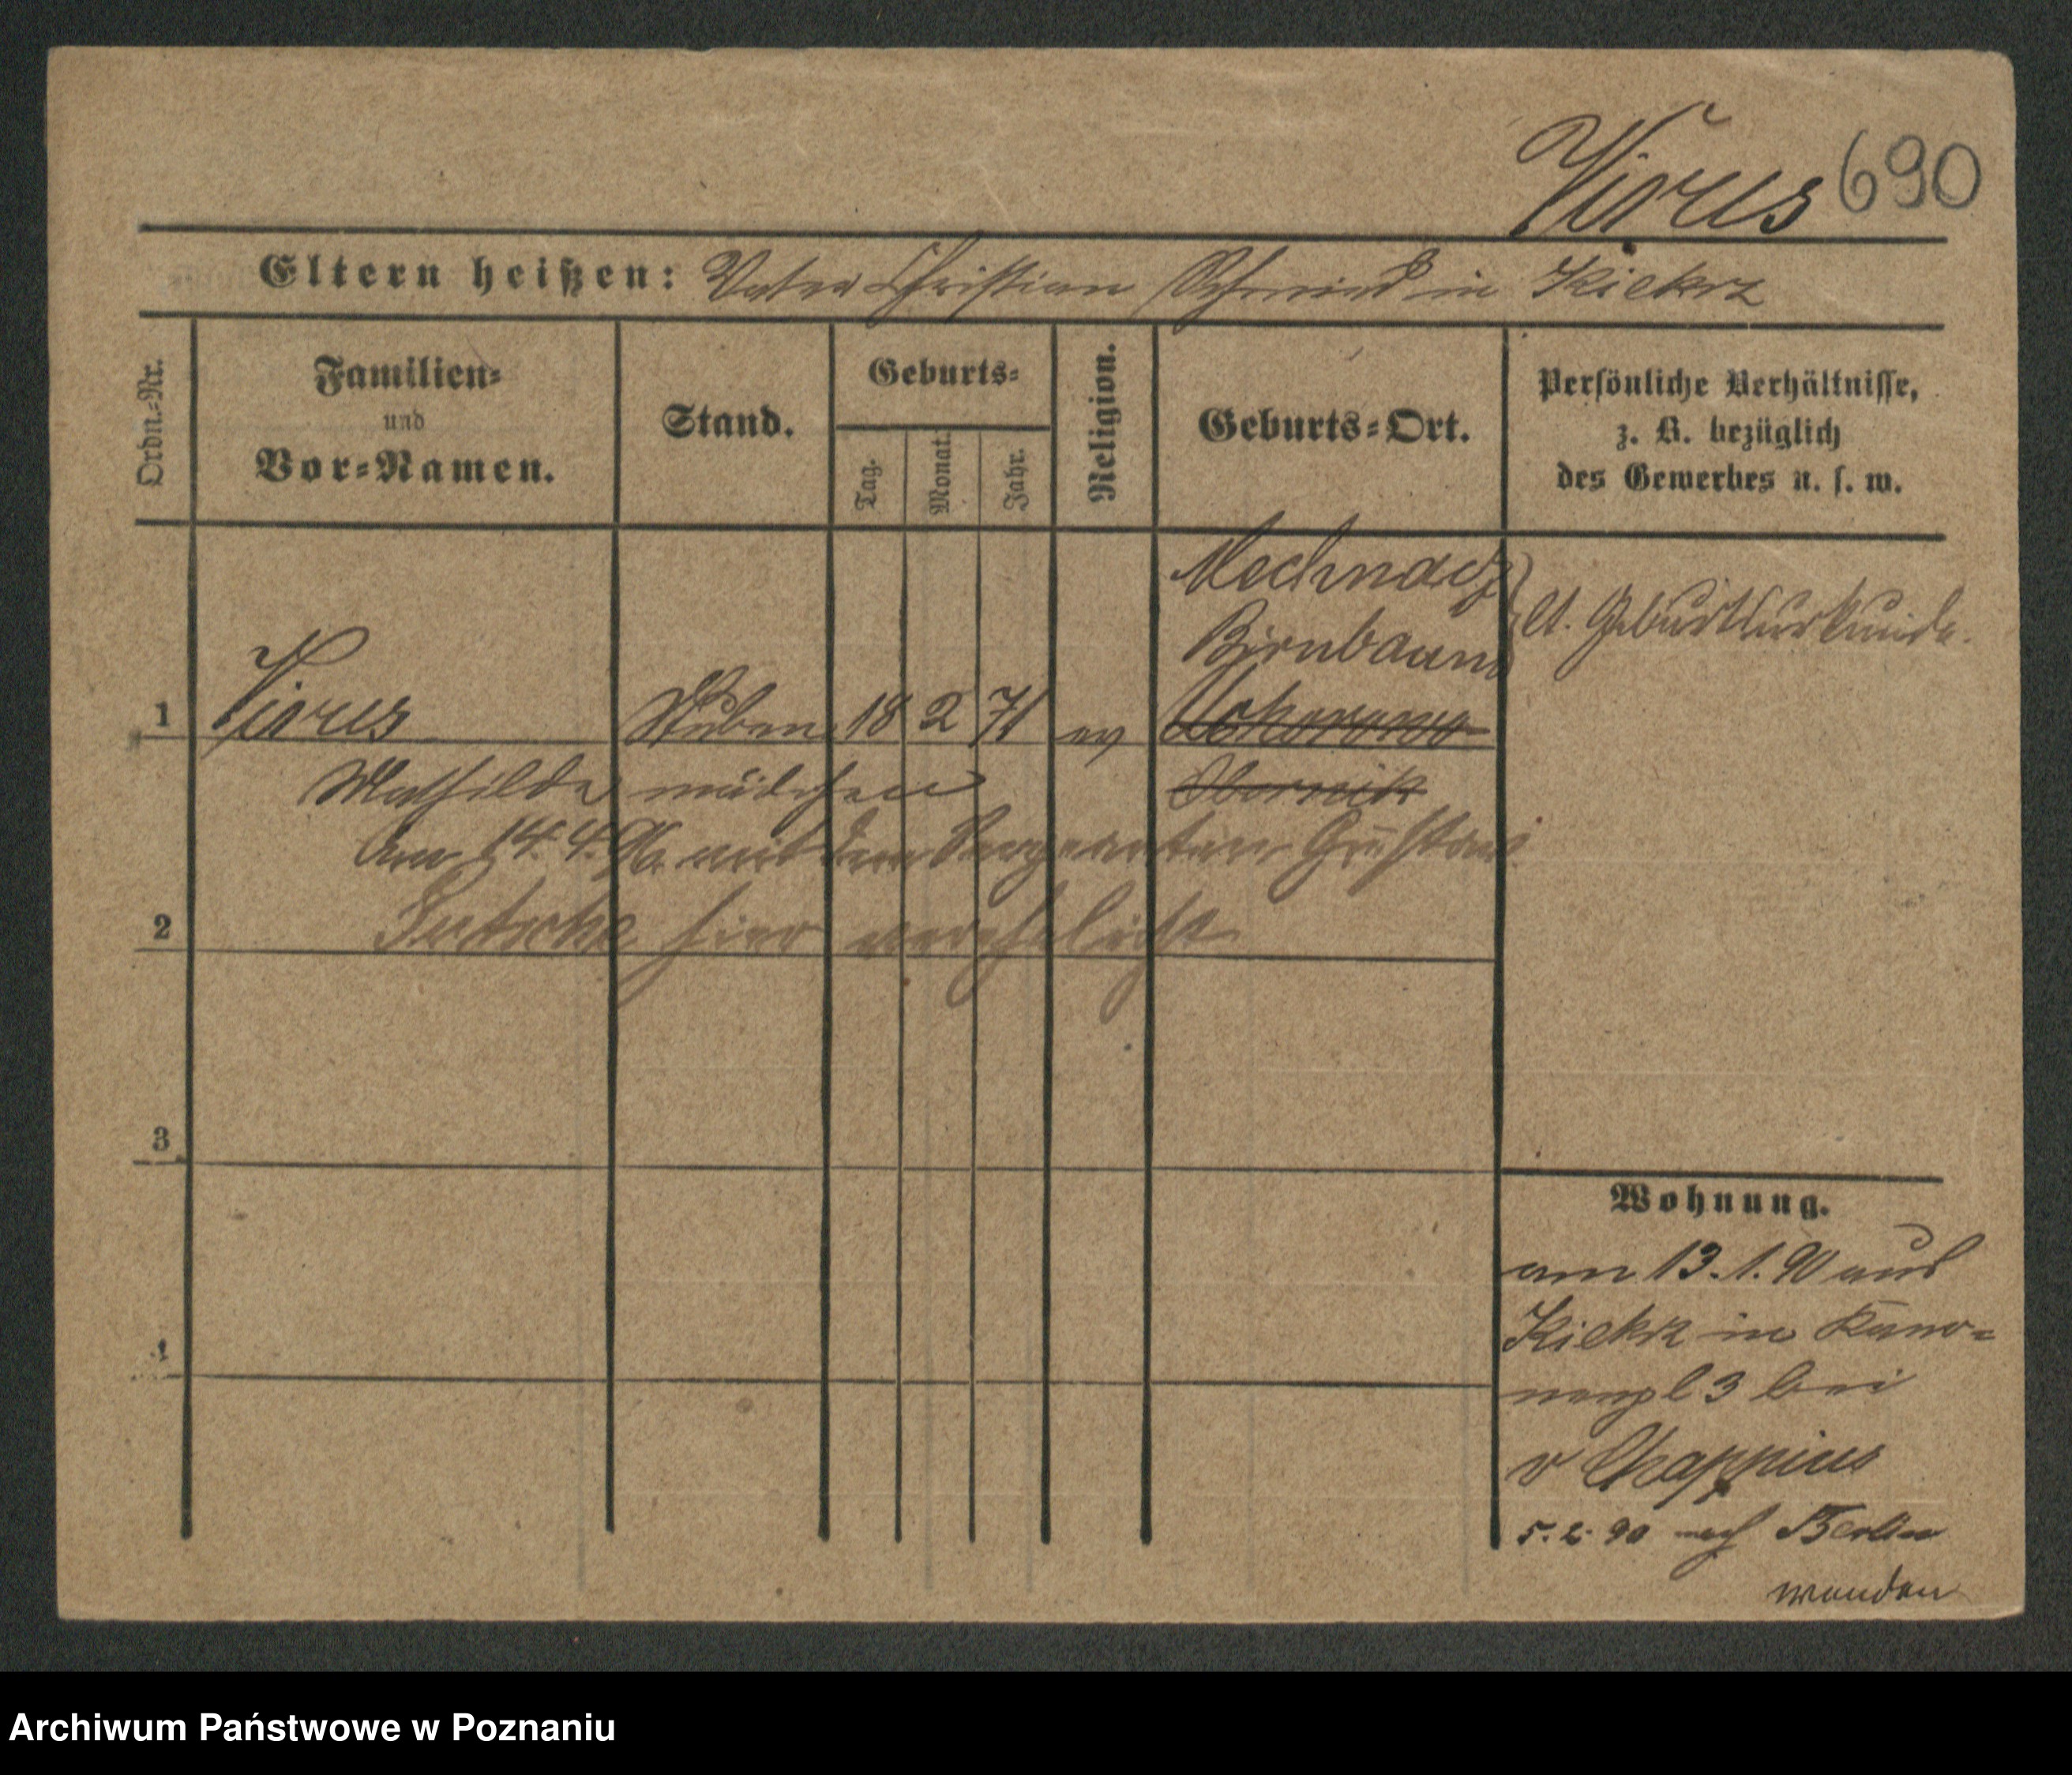 Virus 690
Eltern heißen: Vater Christian Schmied in Kiekrz
Ordn.-Nr.
Familien-
und
Vor-Namen.
Stand.
Geburts-
Tag.
Monat.
Jahr.
Religion.
Geburts-Ort.
Persönliche Verhältnisse,
z. B. bezüglich
des Gewerbes u. s. w.
Mechnacz
Birnbaum
lt. Geburtsurkunde.
1 Virus Stuben 18 2 71 ev
Mathilde mädchen Obornik
Am 14. 4. mit dem Sergeanten Gustav
2 hier verehelicht
3
4
Wohnung.
am 13.1.90 aus
Kiekrz in Kano-
nenpl 3 bei
v Chappuis
5.2.90 nach Berlin
wenden
Archiwum Państwowe w Poznaniu